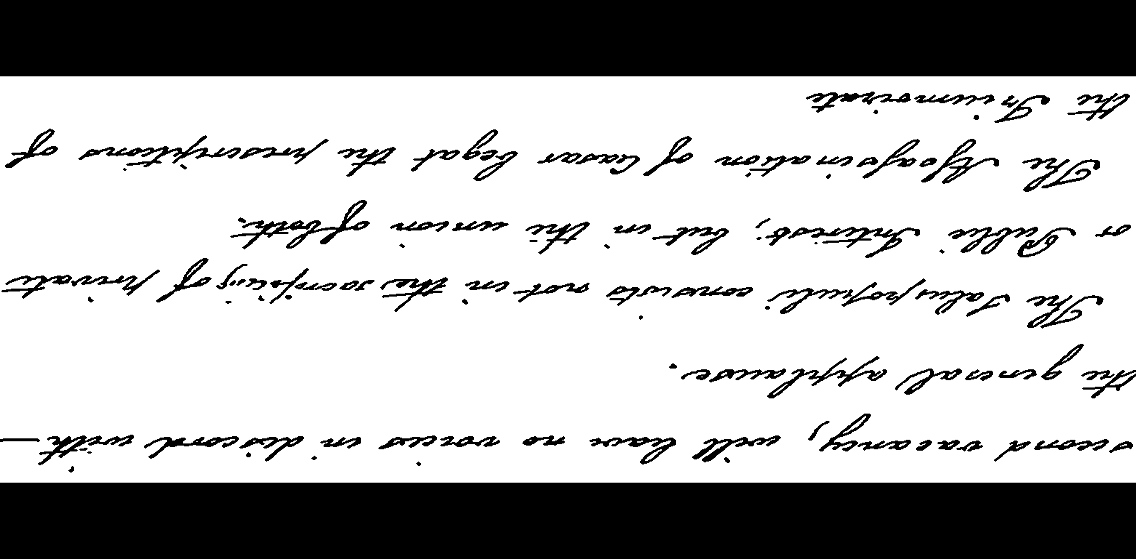 second vacancy, will leave no voices in discord with —
the general applause.
The Salus populi consists not in the sacrificing of private
or Public Interest; but in the union of both.
The Assassination of Caesar begat the prescriptions of
the Triumvirate